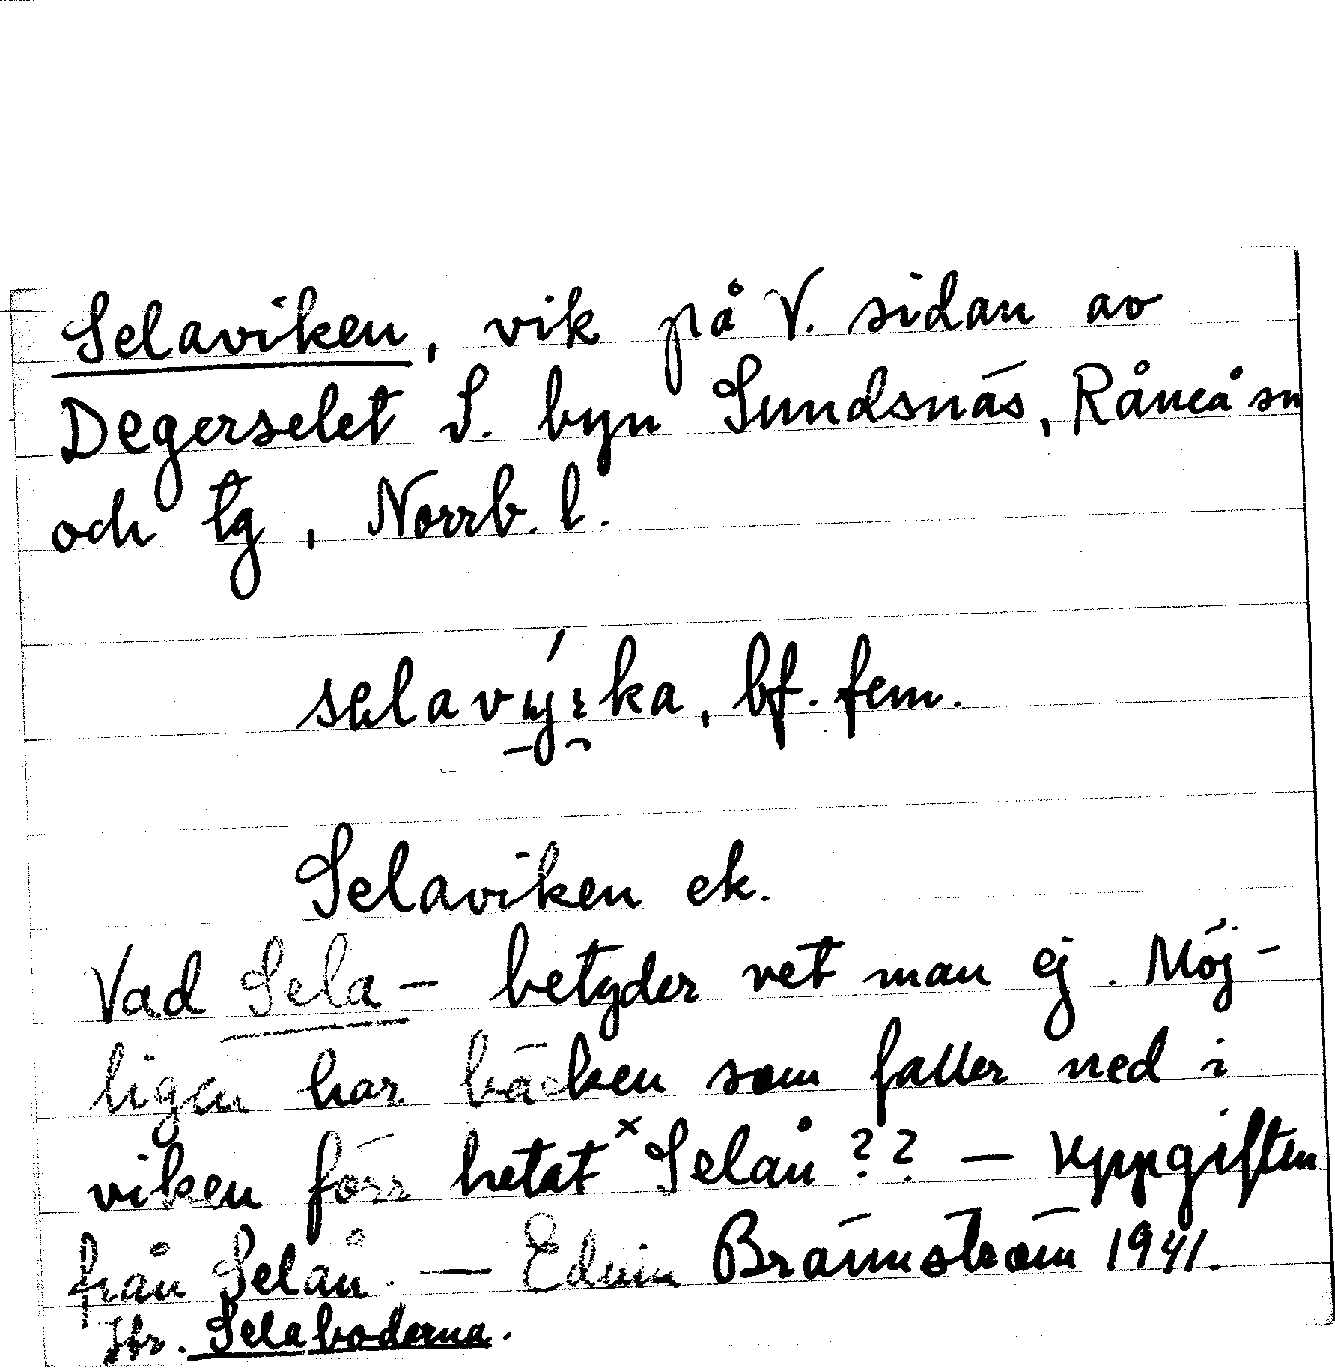 Selaviken, vik på V. sidan av
Degerselet S. byn Sundsnäs, Råneå sn
och tg, Norrb. l.
Selaviken ek.
Vad Sela- betyder vet man ej. Möj-
ligen har bäcken som faller ned i
viken förr hetat ×Selån?? — Uppgiften
från Selån. — Edvin Brännström 1941.
Jfr. Selaboderna.
bf. fem.